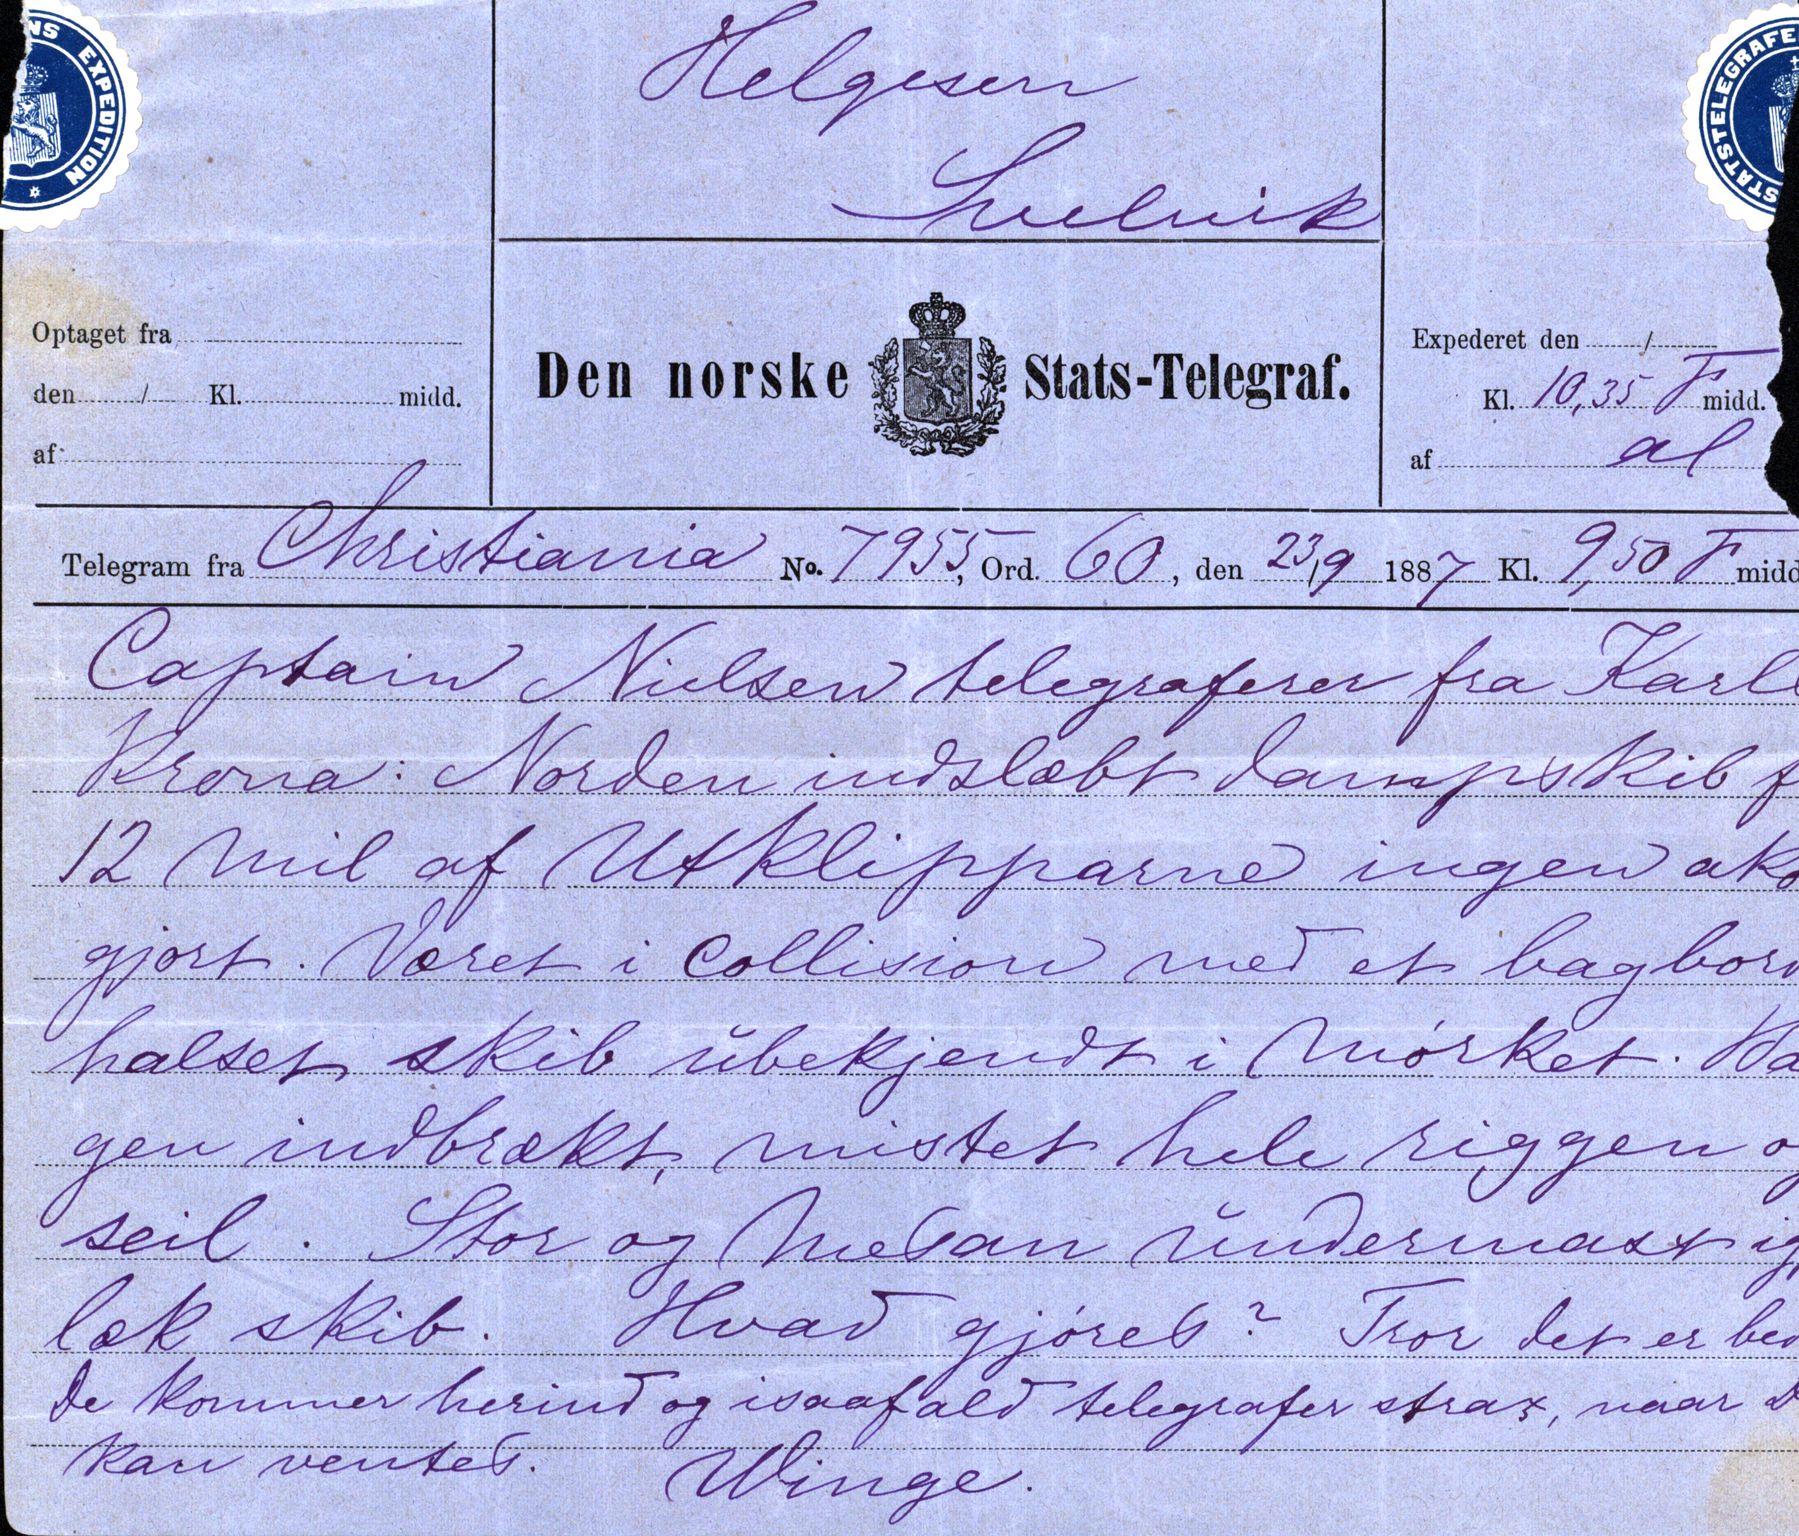 Helgesen
Svelvik
NS EXPEDITION
STATSTELEGRAFE
Optaget fra
den / Kl. midd.
af
Den norske Stats-Telegraf.
Expederet den /
Kl. 10,35 F midd.
af al
Telegram fra Christiania No. 7955, Ord. 60, den 23/9 1887 Kl. 9,50 F midd
Captain Nielsen telegraferer fra Karls
Krona: Norden indslæbt dampskib f
12 mil af Utklipparne ingen ako
gjort. Været i Collision med et bagbord
halset skib ubekjendt i Mørket. Ba
gen indbrækt, mistet hele riggen og
seil. Stor og Mesan undermast ig
læk skib. Hvad gjøres? Tror det er bed
De kommer herind og isaafald telegrafer strax, naar D
kan ventes. Winge.